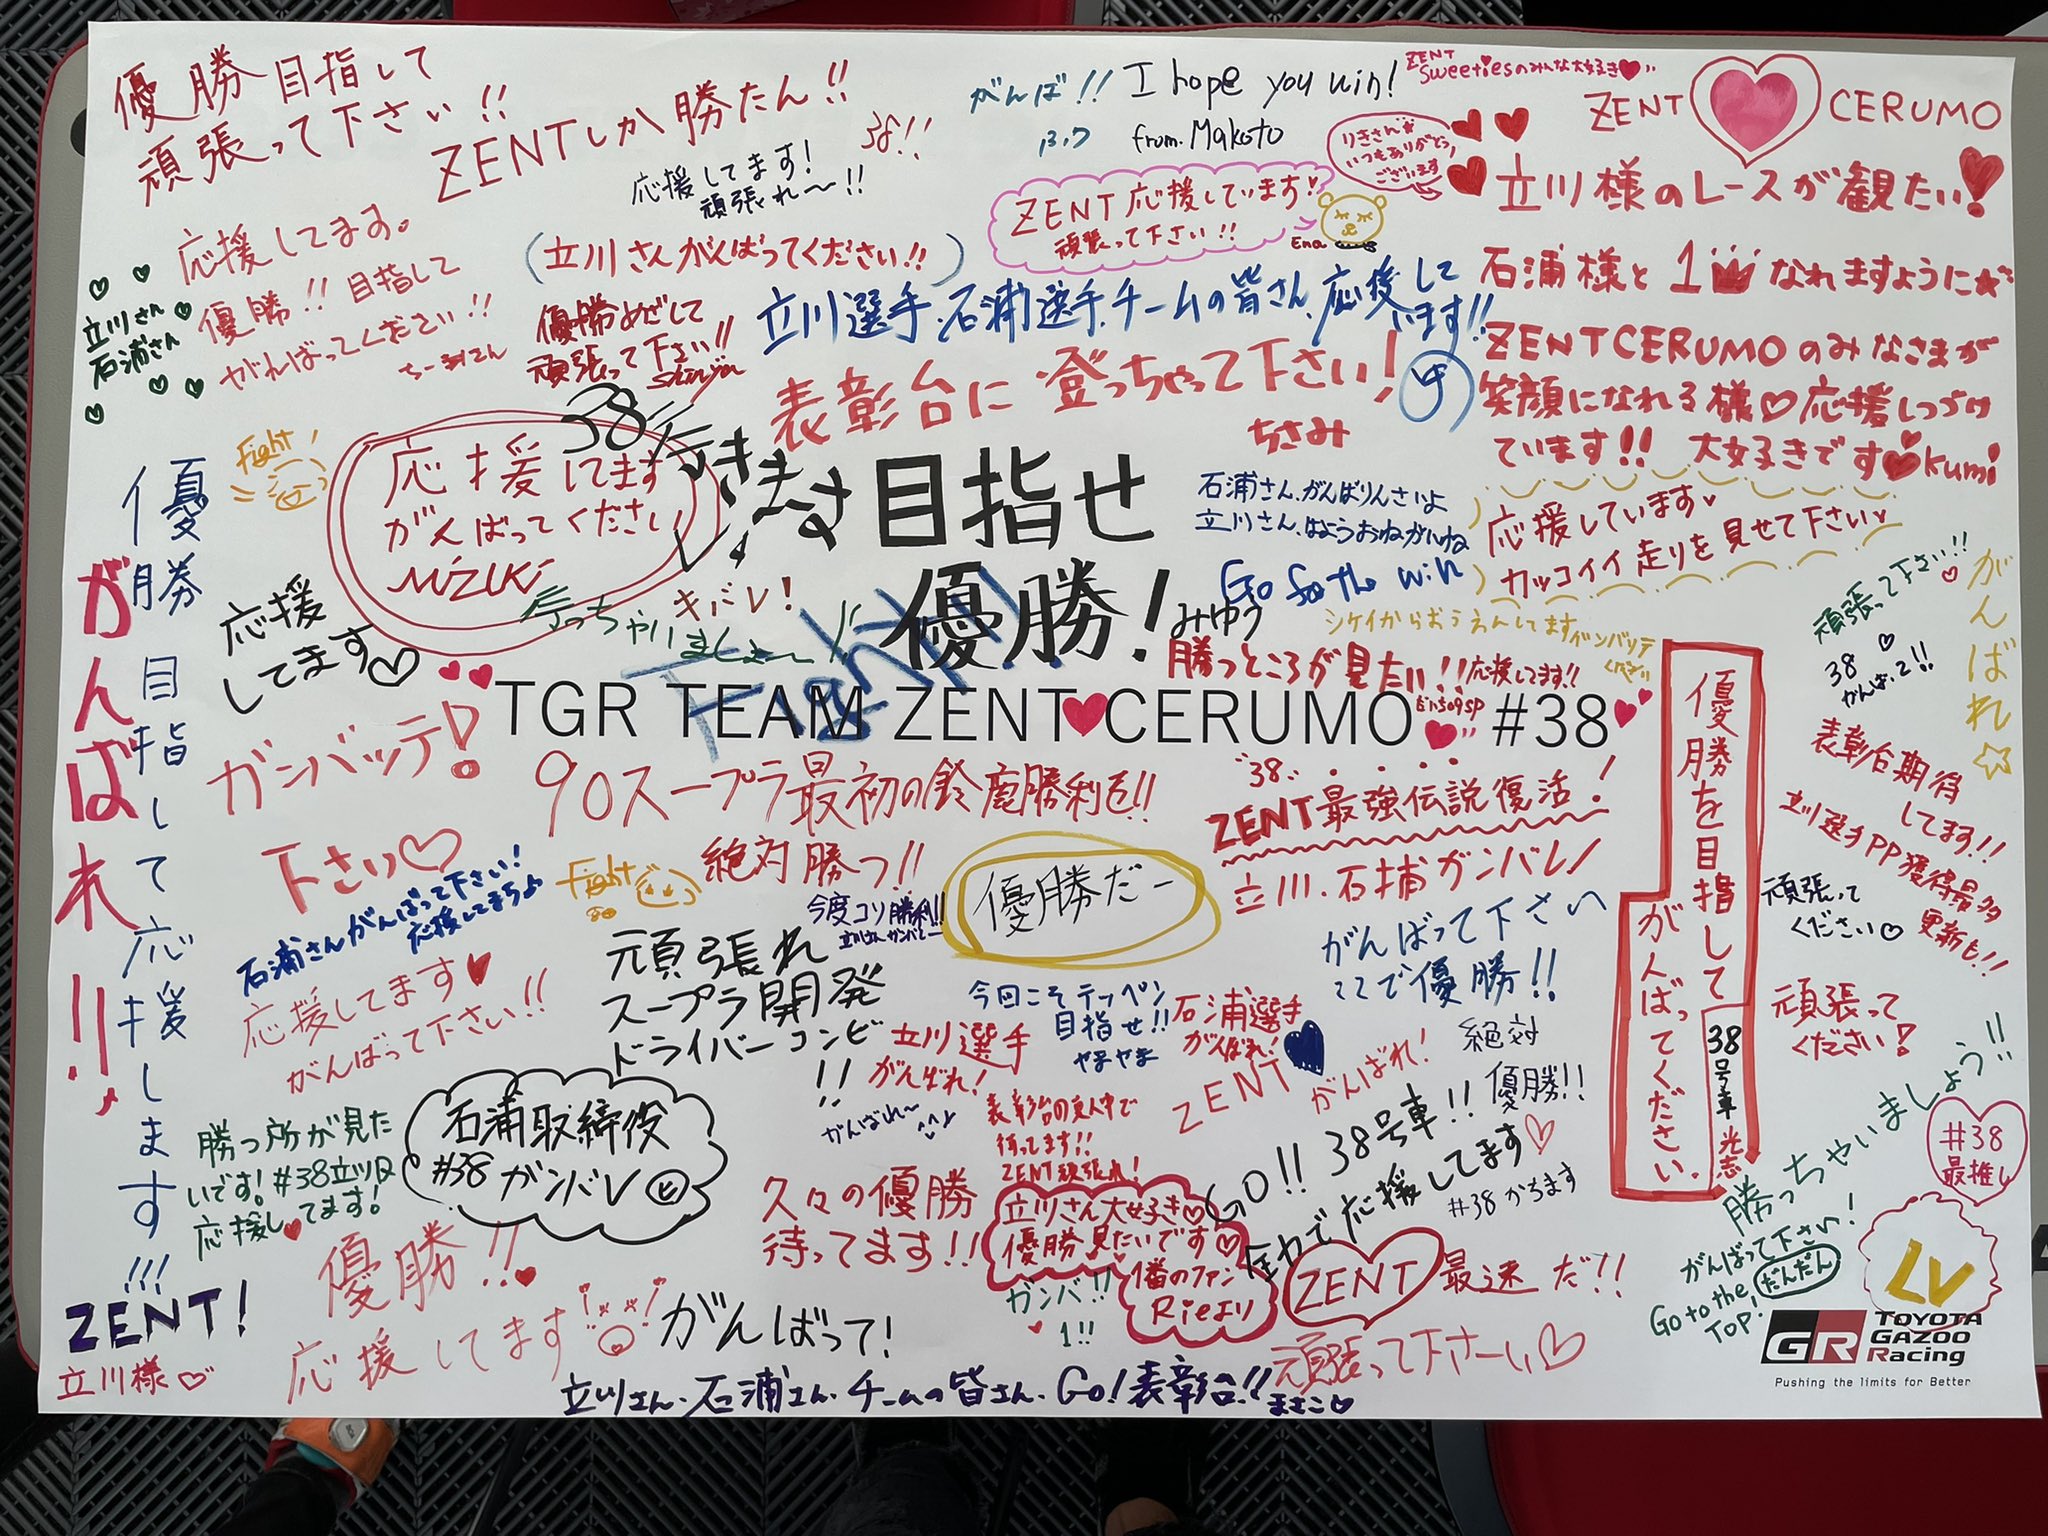 優勝目指して
頑張って下さい!!
ZENTしか勝たん!!
38!!
応援してます!
頑張れ〜!!
がんば!!
I hope you win!
from. Makoto
ZENT
Sweetiesのみんな大好き♥
りきさん
いつもありがとう
ございます
ZENT ♥ CERUMO
立川様のレースが観たい!
石浦様と1なれますように☆
ZENT CERUMOのみなさまが
笑顔になれる様♡応援しつづけ
ています!! 大好きです♥kumi
ZENT応援しています!
頑張って下さい!!
Ena
応援してます。
優勝!!目指して
がんばってください!!
立川さん
石浦さん
(立川さんがんばってください!!)
優勝めざして
頑張って下さい!!
Shinya
立川選手.石浦選手.チームの皆さん、応援して
います!!
表彰台に登っちゃって下さい!
ちさみ
Fight!
応援してます
がんばってください
MIZUKI
38
目指せ
優勝!
みゆう
石浦さん、がんばりんさいよ
立川さん、はようおねがいね
Go for the win
応援しています♡
カッコイイ走りを見せて下さい♡
頑張って下さい!!
38
がんばって!!
がんばれ☆
優勝目指して応援します!!!
がんばれ!!
応援
してます♡
キバレ!
行っちゃいましょ〜!!
Fight!!
シケイからおうえんしてます
ガンバッテ
ください
勝つところが見たい!!
応援してます!!
TGR TEAM ZENT♥CERUMO #38
ガンバッテ!
下さい♡
90スープラ最初の鈴鹿勝利を!!
"38"
ZENT最強伝説復活!
立川.石浦ガンバレ!
優勝を目指して
がんばってください.
38号車 光志
表彰台期待
してます!!
立川選手PP獲得最多
更新も!!
頑張って
ください♡
頑張って
ください!
石浦さんがんばって下さい!
応援してまち♪
Fight
絶対勝つ!!
今度コソ勝利!!
立川さんガンバレー
優勝だー
がんばって下さい
ココで優勝!!
応援してます♥
がんばって下さい!!
頑張れ
スープラ開発
ドライバーコンビ
!!
今回こそテッペン
目指せ!!
やまやま
立川選手
がんばれ!
石浦選手
がんばれ!
ZENT
がんばれ!
絶対
優勝!!
がんばれ〜
表彰台の真ん中で
待ってます!!
ZENT頑張れ!
GO!! 38号車!!
全力で応援してます♡
#38 かちます
勝っちゃいましょう!!
#38
最推し
勝つ所が見た
いです!#38立川Q
応援してます!
石浦取締役
#38 ガンバレ
久々の優勝
待ってます!!
立川さん大好き♡
優勝見たいです♡
1番のファン
Rieより
ガンバ!!
1!!
ZENT 最速だ!!
がんばって下さい!
Go to the
TOP!
だんだん
LV
ZENT!
立川様♡
優勝!!
応援してます
がんばって!
頑張って下さーい♡
立川さん.石浦さん.チームの皆さん.Go!表彰台!!
まさこ♡
GR TOYOTA
GAZOO
Racing
Pushing the limits for Better